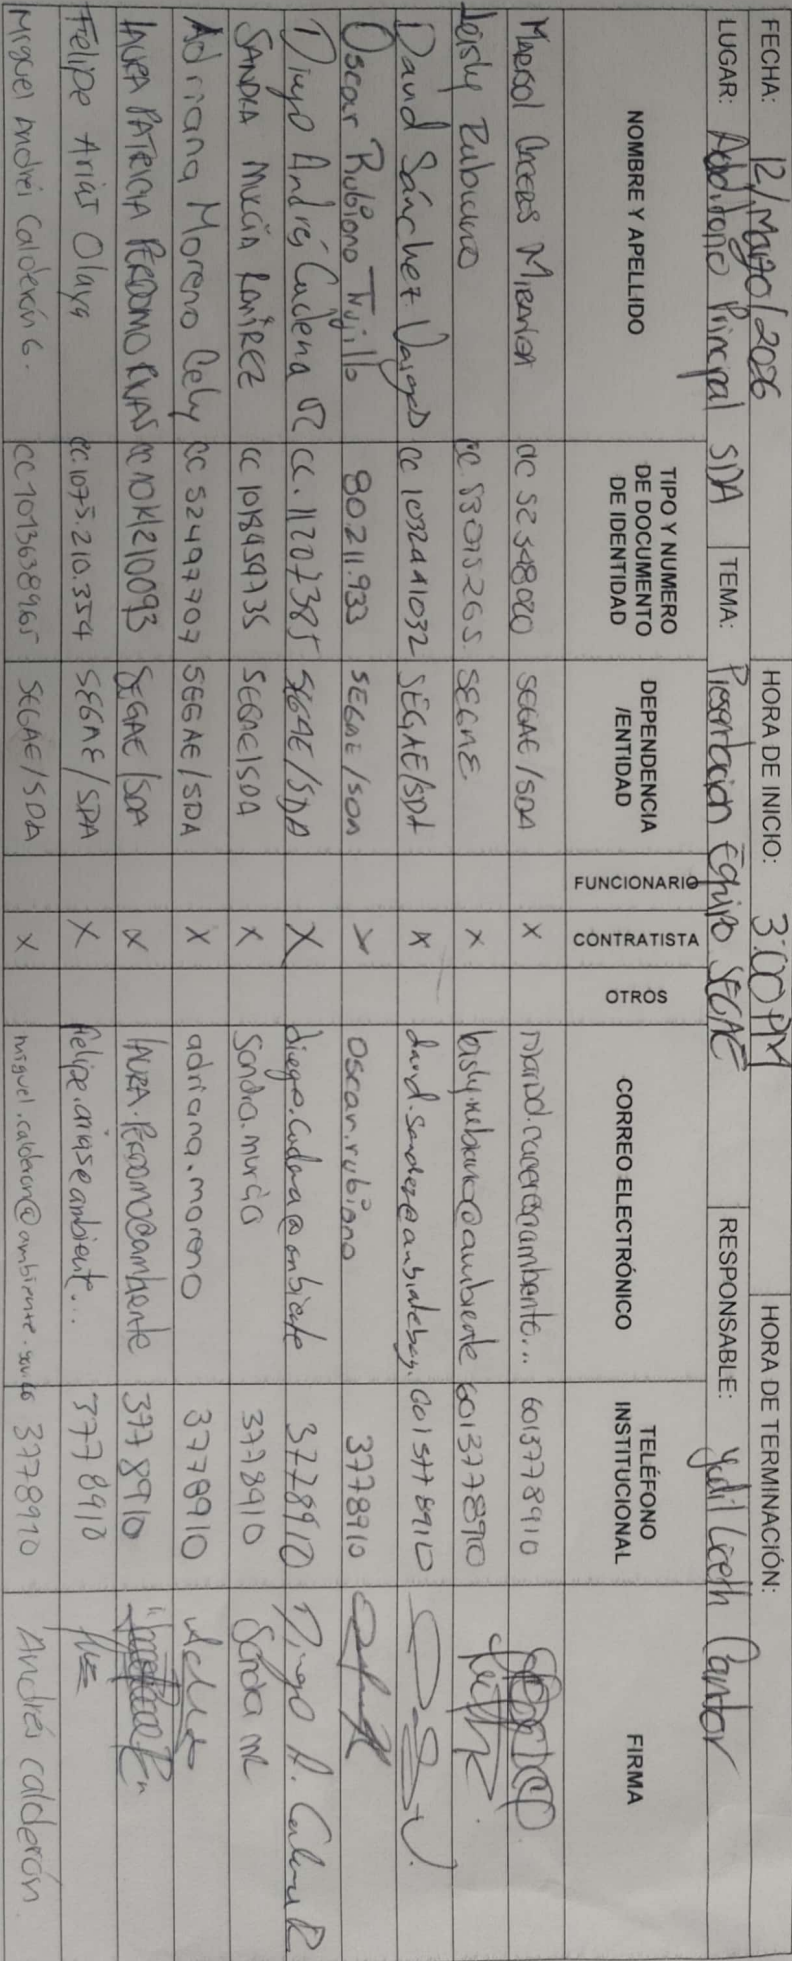 FECHA: 12/Mayo/2026 HORA DE INICIO: 3:00 PM HORA DE TERMINACIÓN:
LUGAR: Auditorio Principal SDA TEMA: Presentación Equipo SEGAE RESPONSABLE: Yudi Liceth Cantor
NOMBRE Y APELLIDO TIPO Y NUMERO DE DOCUMENTO DE IDENTIDAD DEPENDENCIA /ENTIDAD FUNCIONARIO CONTRATISTA OTROS CORREO ELECTRÓNICO TELÉFONO INSTITUCIONAL FIRMA
Marsol Caceres Miranda cc SEGAE/SDA X 6013778910
Leisly Rubiano cc. 53075265 SEGAE X 6013778910
David Sánchez Vargas cc 1032441032 SEGAE/SDA X
Oscar Rubiano Trujillo 80.211.933 SEGAE/SDA X oscar.rubiano 3778910
Diego Andrés Cadena R cc. 11207385 SEGAE/SDA X diego.cadena@ambiente 3778910 Diego A. Cadena R.
SANDRA MURCIA RAMIREZ cc 1018459735 SEGAE/SDA X sandra.murcia 3778910 Sandra MR
Adriana Moreno Cely CC 52497707 SEGAE/SDA X adriana.moreno 3778910
LAURA PATRICIA PERDOMO RIVAS SEGAE/SDA X LAURA.PERDOMO@ambiente 3778910
Felipe Arias Olaya cc.1075.210.354 SEGAE/SDA X felipe.arias@ambiente... 3778910
Miguel Andrei Calderón G. CC1013638965 SEGAE/SDA X miguel.calderon@ambiente.gov.co 3778910 Andrés Calderón.